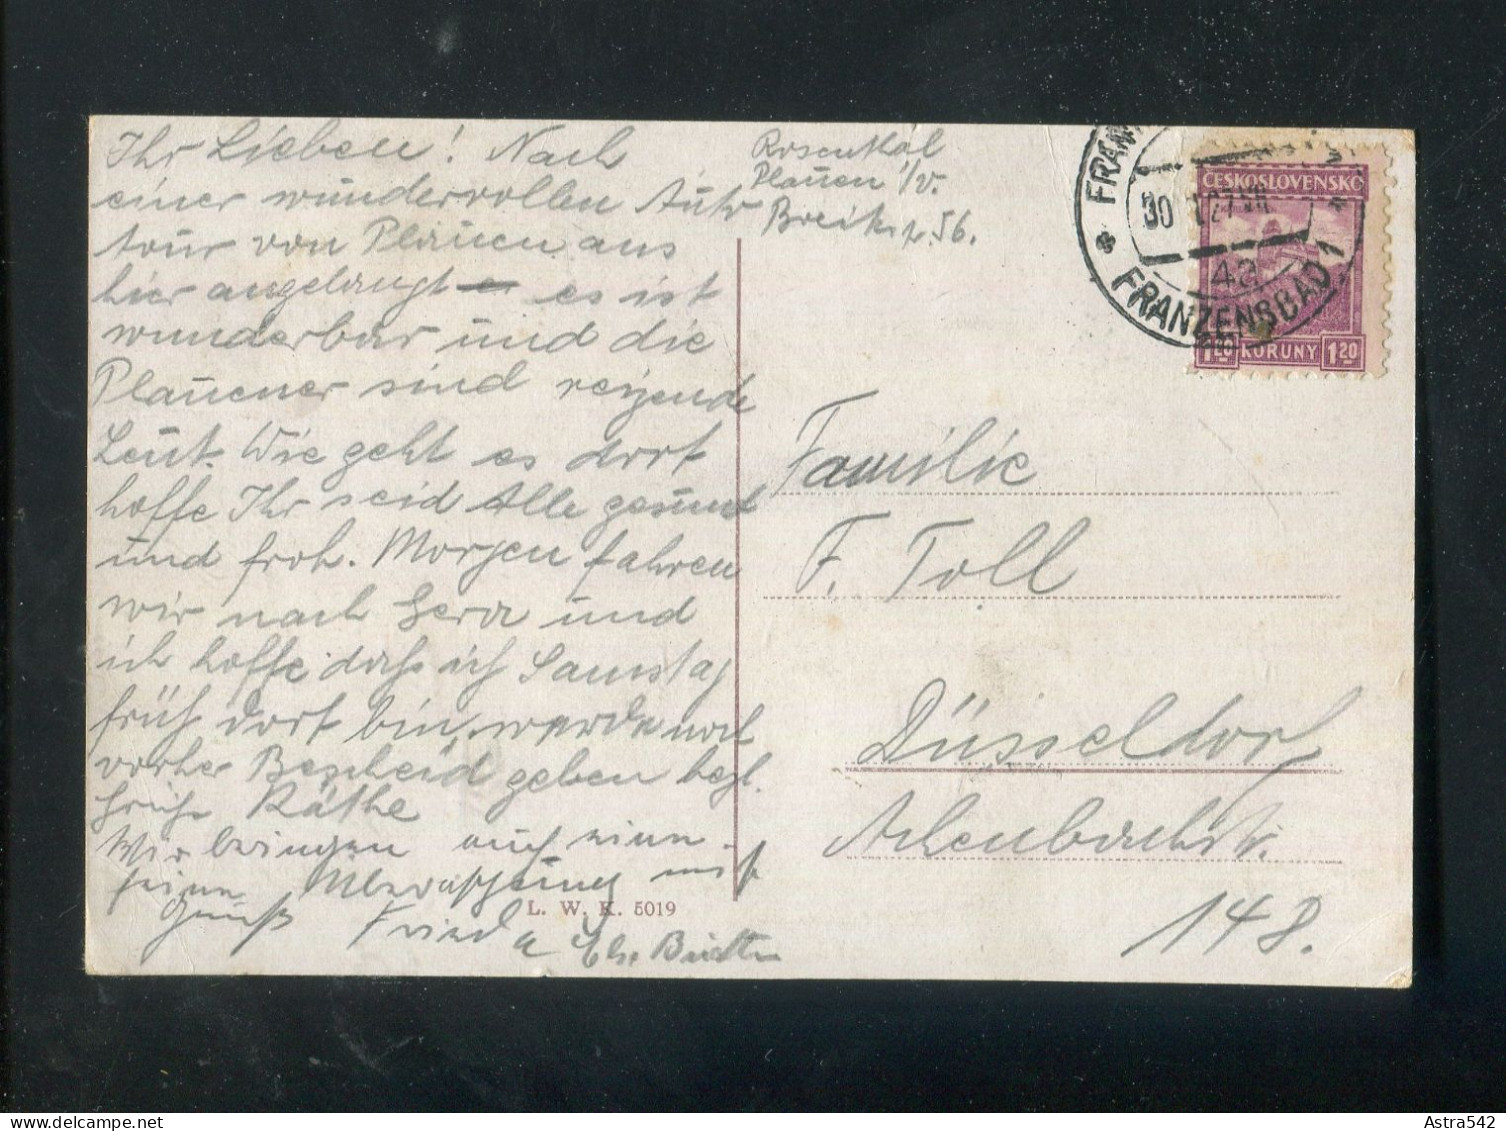 Ihr Lieben! Nach
einer wundervollen Auto
tour von Plauen aus
hier angelangt es ist
wunderbar und die
Plauener sind reizende
Leut. Wie geht es dort
hoffe Ihr seid Alle gesund
und froh. Morgen fahren
wir nach Gera und
ich hoffe dass ich Samstag
früh dort bin, werde noch
vorher Bescheid geben hzgl.
Grüße Käthe
Wir bringen auch eine
feine Überraschung mit
Gruß Frieda
L. W. K. 5019
Rosenthal
Plauen i/V.
Breitestr. 56.
FRANZENSBAD 1
30
4a
CESKOSLOVENSKO
1.20 KORUNY 1.20
Familie
F. Toll
Düsseldorf
Achenbachstr.
148.
Astra542